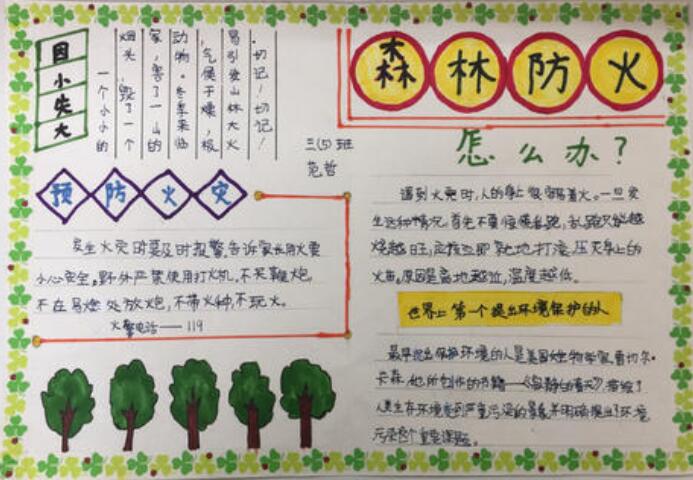 森林防火
因小失大
一个小小的
烟头，毁了一个
家，害了一山的
动物。冬季来临
，气候干燥，极
易引发山林大火
。切记！切记！
三(5)班
范哲
预防火灾
发生火灾时要及时报警告诉家长用火要
小心安全。野外严禁使用打火机。不买鞭炮，
不在易燃处放炮，不带火种，不玩火。
火警电话——119
怎么办？
遇到火灾时，人的身上很容易着火。一旦发
生这种情况，首先不要惊慌乱跑，乱跑只能越
烧越旺，应该立即就地打滚，压灭身上的
火苗。原因是离地越近，温度越低。
世界上第一个提出环境保护的人
最早提出保护环境的人是美国女生物学家蕾切尔·
卡森，她所创作的书籍——《寂静的春天》描绘了
人类生存环境受到严重污染的景象，并明确提出了环境
污染这个重要课题。